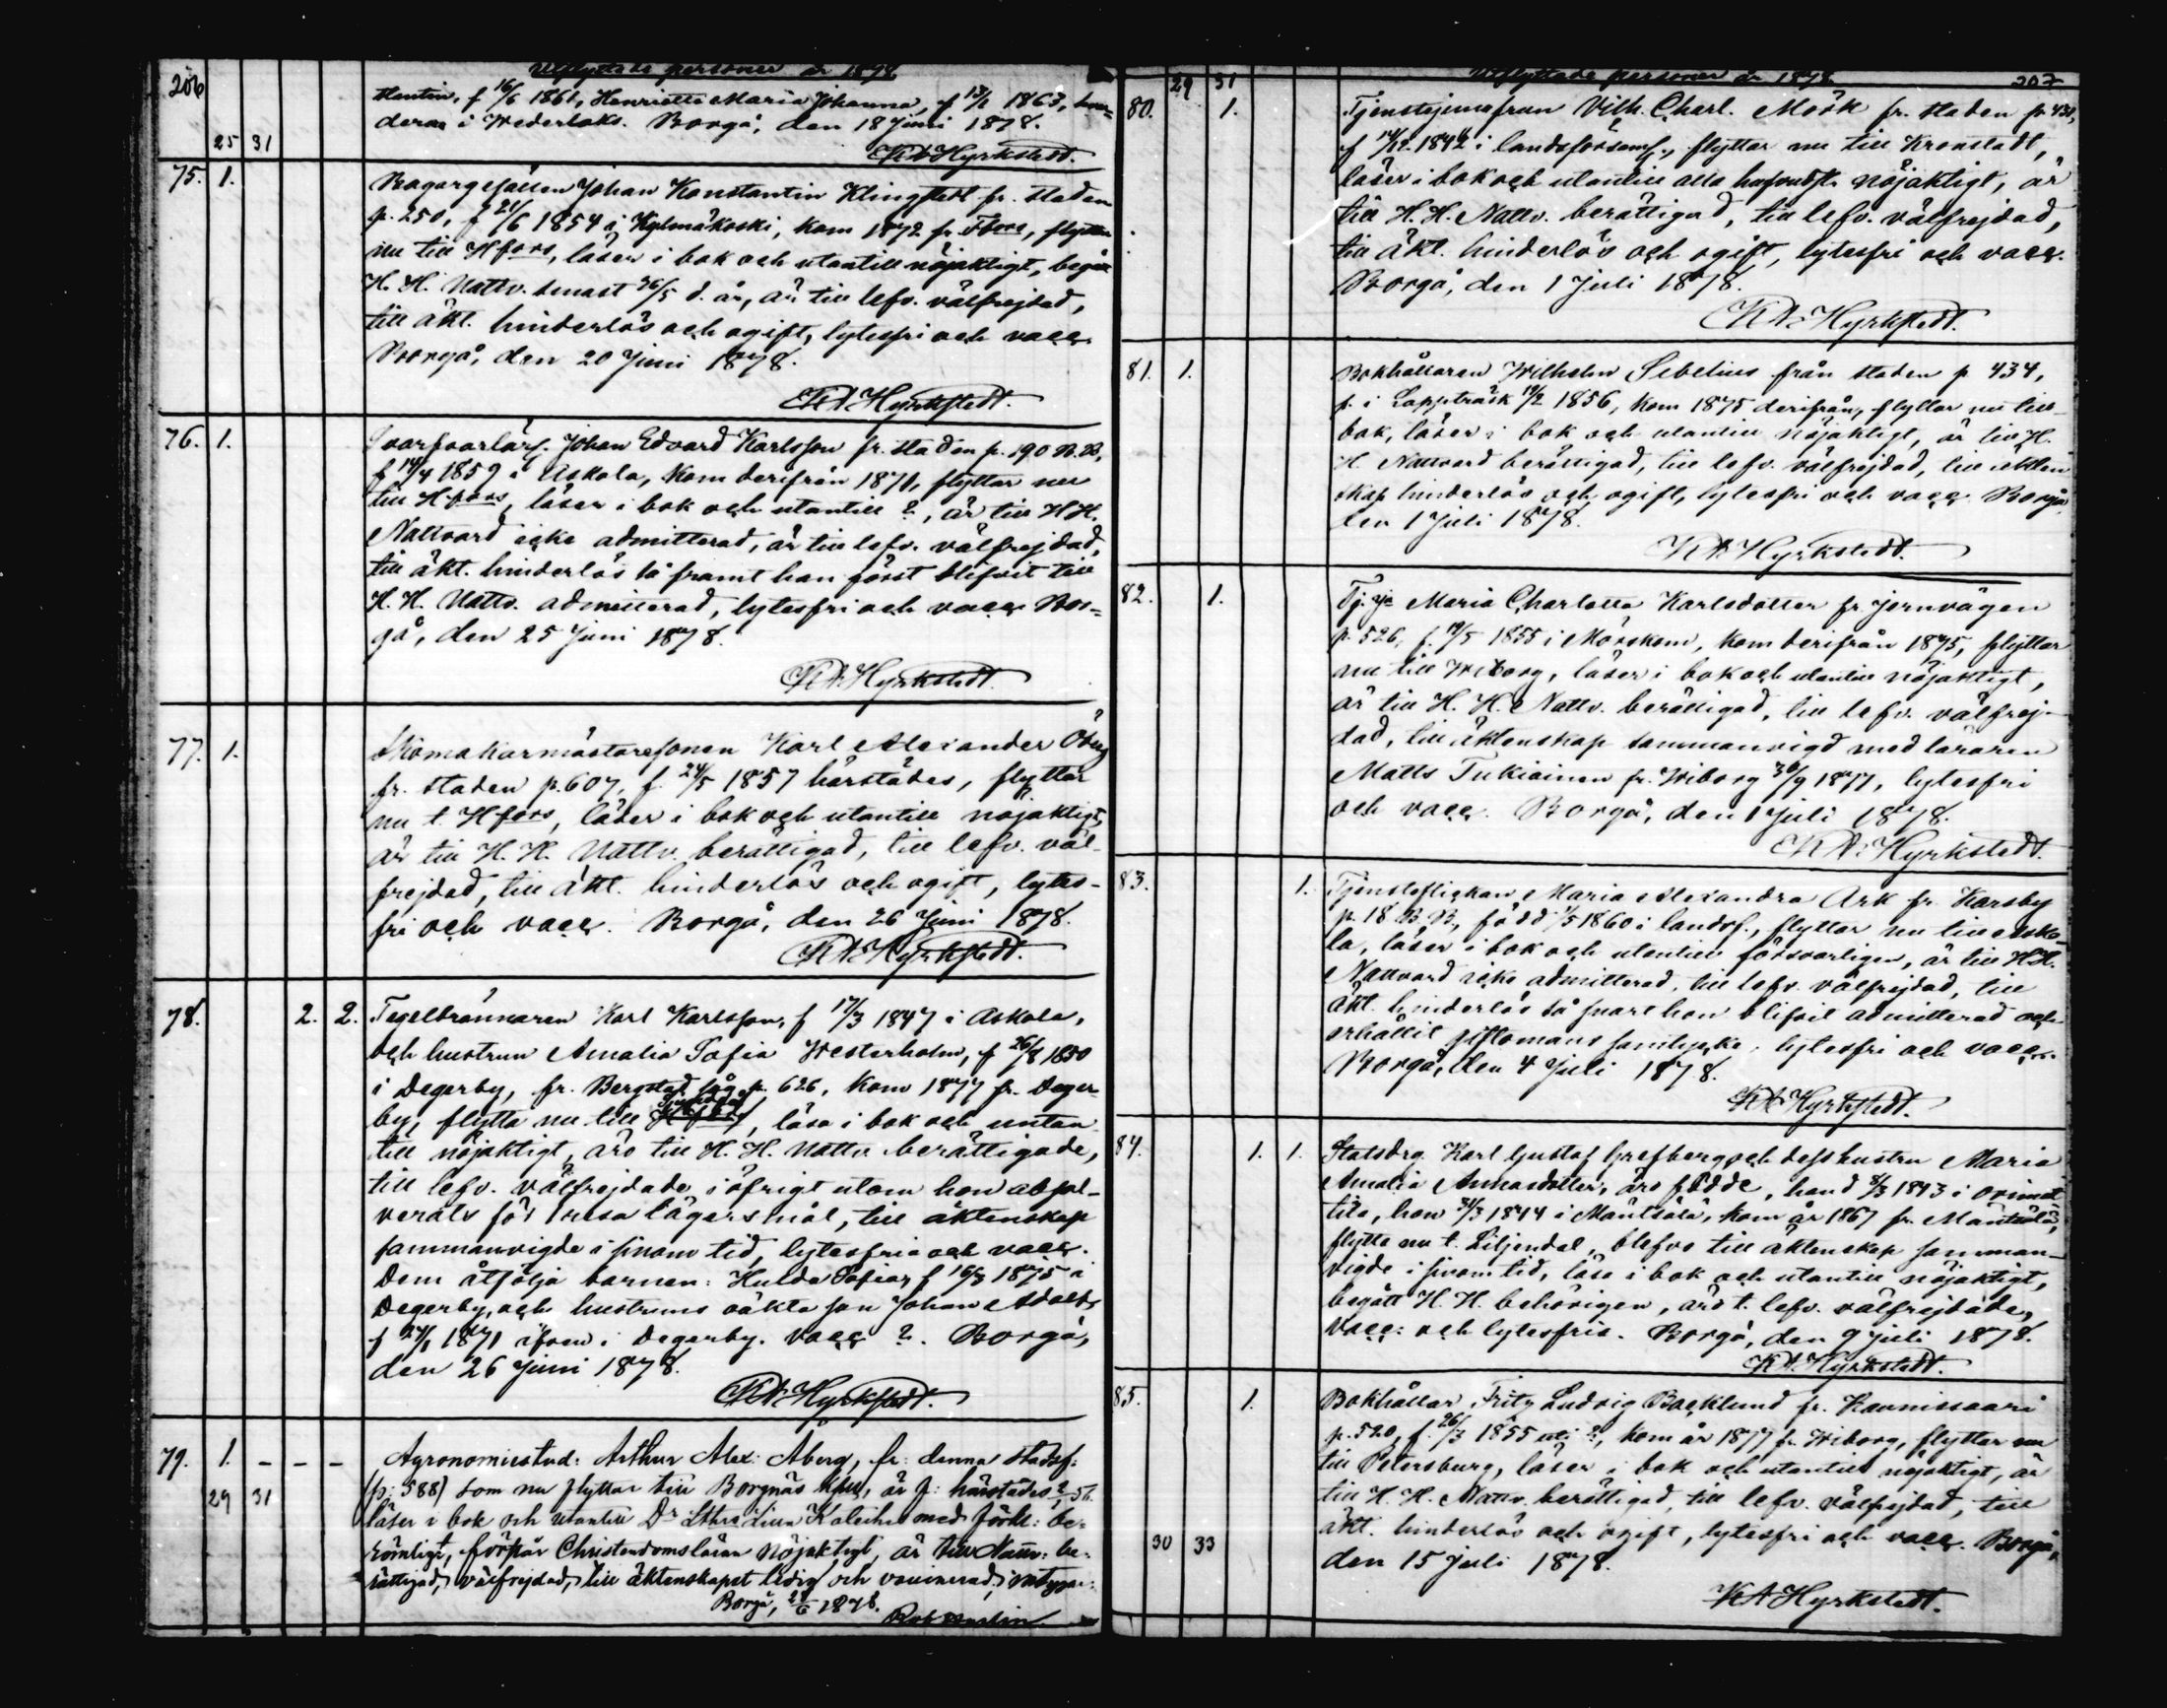 206
Utflyttade personer år 1878
Martin, f 16/6 1861, Henrietta Maria Johanna, f 13/2 1863,
deras i Wederlaks. Borgå, den 18 Juni 1878.
25 31
KA Hyrkstedt.
75. 1.
Bagargesällen Johan Konstantin Klingstedt fr. staden
p. 250, f 21/6 1854 i Kylmäkoski, kom 1872 fr. Tfors, flyttar
nu till Hfors, läser i bok och utantill nöjaktigt, begått
H. H. Nattv. senast 26/5 d. år, är till lefv. välfrejdad,
till äkt. hinderlös och ogift, lytesfri och vacc.
Borgå, den 20 Juni 1878.
KA Hyrkstedt.
76. 1.
Svarfvarlärl. Johan Edvard Karlsson fr. staden p. 190 N.B.,
f 14/4 1859 i Askola, kom derifrån 1871, flyttar nu
till Hfors, läser i bok och utantill ?, är till H.H.
Nattvard icke admitterad, är till lefv. välfrejdad,
till äkt. hinderlös så framt han först blifvit till
H. H. Nattv. admitterad, lytesfri och vacc. Bor=
gå, den 25 Juni 1878.
KA Hyrkstedt.
77. 1.
Skomakarmästaresonen Karl Alexander Öberg
fr. staden p. 607, f. 24/5 1857 härstädes, flyttar
nu t. Hfors, läser i bok och utantill nöjaktigt,
är till H. H. Nattv. berättigad, till lefv. väl-
frejdad, till äkt. hinderlös och ogift, lytes-
fri och vacc. Borgå, den 26 Juni 1878.
KA Hyrkstedt.
78. 2. 2.
Tegelbrännaren Karl Karlsson, f 17/3 1847 i Askola,
och hustrun Amalia Sofia Westerholm, f 26/8 1850
i Degerby, fr. Bergstad såg p. 626, kom 1877 fr. Deger-
by, flytta nu till Hfors, läsa i bok och untan
till nöjaktigt, äro till H. H. Nattv berättigade,
till lefv. välfrejdade i öfrigt utom hon absol-
verats för 1 resa lägersmål, till äktenskap
sammanvigde i sinom tid, lytesfria och vacc.
Dem åtfölja barnen: Hulda Sofia, f 16/3 1875 i
Degerby, och hustruns oäkta son Johan Adolf,
f 24/1 1871 äfven i Degerby. Vacc ?. Borgå,
den 26 Juni 1878.
KA Hyrkstedt.
79. 1. - - -
29 31
Agronomiestud: Arthur Alex: Åberg, fr: denna stadsf:
(p: 588) som nu flyttar till Borgnäs, är f: härstädes
läser i bok och utantill Dr Luthers Lilla Katekes med förkl: be-
römligt, förstår Christendomsläran nöjaktigt, är till Nattv: be-
rättigad, välfrejdad, till äktenskapet ledig och vaccinerad, intygar:
Borgå, 28/6 1878.
29 31
Utflyttade personer år 1878
207
80. 1.
Tjenstejungfrun Vilh. Charl. Mörk fr. staden p. 431,
f 14/12 1842 i landsförsaml., flyttar nu till Kronstadt,
läser i bok och utantill alla hufvudst. nöjaktigt, är
till H. H. Nattv. berättigad, till lefv. välfrejdad,
till äkt. hinderlös och ogift, lytesfri och vacc.
Borgå, den 1 Juli 1878.
KA Hyrkstedt.
81. 1.
Bokhållaren Wilhelm Sebelius från staden p 434,
f. i Lappträsk 19/2 1856, kom 1875 derifrån, flyttar nu till-
bak, läser i bok och utantill nöjaktigt, är till H.
H. Nattvard berättigad, till lefv. välfrejdad, till äkten
skap hinderlös och ogift, lytesfri och vacc. Borgå
den 1 Juli 1878.
KA Hyrkstedt.
82. 1.
Tj. Maria Charlotta Karlsdotter fr. jernvägen
p. 526, f. 19/5 1855 i Mörskom, kom derifrån 1875, flyttar
nu till Wiborg, läser i bok och utantill nöjaktigt,
är till H. H. Nattv. berättigad, till lefv. välfrej-
dad, till äktenskap sammanvigd med läraren
Matts Tukiainen fr. Wiborg 30/9 1877, lytesfri
och vacc. Borgå, den 1 Juli 1878.
KA Hyrkstedt.
83. 1.
Tjensteflickan Maria Alexandra Ark fr. Karsby
p. 18 B.B., född 1/5 1860 i landsf., flyttar nu till Asko-
la, läser i bok och utantill försvarligen, är till H.H.
Nattvard icke admitterad, till lefv. välfrejdad, till
äkt. hinderlös så snart hon blifvit admitterad och
erhållit giftomans samtycke, lytesfri och vacc.
Borgå, den 4 Juli 1878.
KA Hyrkstedt.
84. 1. 1.
Statsdrg. Karl Gustaf Grefberg och dess hustru Maria
Amalia Annasdotter, äro födde, han d 8/3 1843 i Orimat
tila, hon 31/3 1844 i Mäntsälä, kom år 1867 fr. Mäntsälä,
flytta nu t. Liljendal, blefvo till äktenskap samman-
vigde i sinom tid, läsa i bok och utantill nöjaktigt,
begått H. H. behörigen, äro t. lefv. välfrejdade,
vacc: och lytesfria. Borgå, den 9 Juli 1878.
KA Hyrkstedt.
85. 1.
Bokhållar Fritz Ludvig Backlund fr. Haunissaari
p. 520, f. 26/3 1855 uti ?, kom år 1877 fr. Wiborg, flyttar nu
till Petersburg, läser i bok och utantill nöjaktigt, är
till H. H. Nattv. berättigad, till lefv. välfrejdad, till
äkt. hinderlös och ogift, lytesfri och vacc. Borgå,
den 15 Juli 1878.
30 33
KA Hyrkstedt.